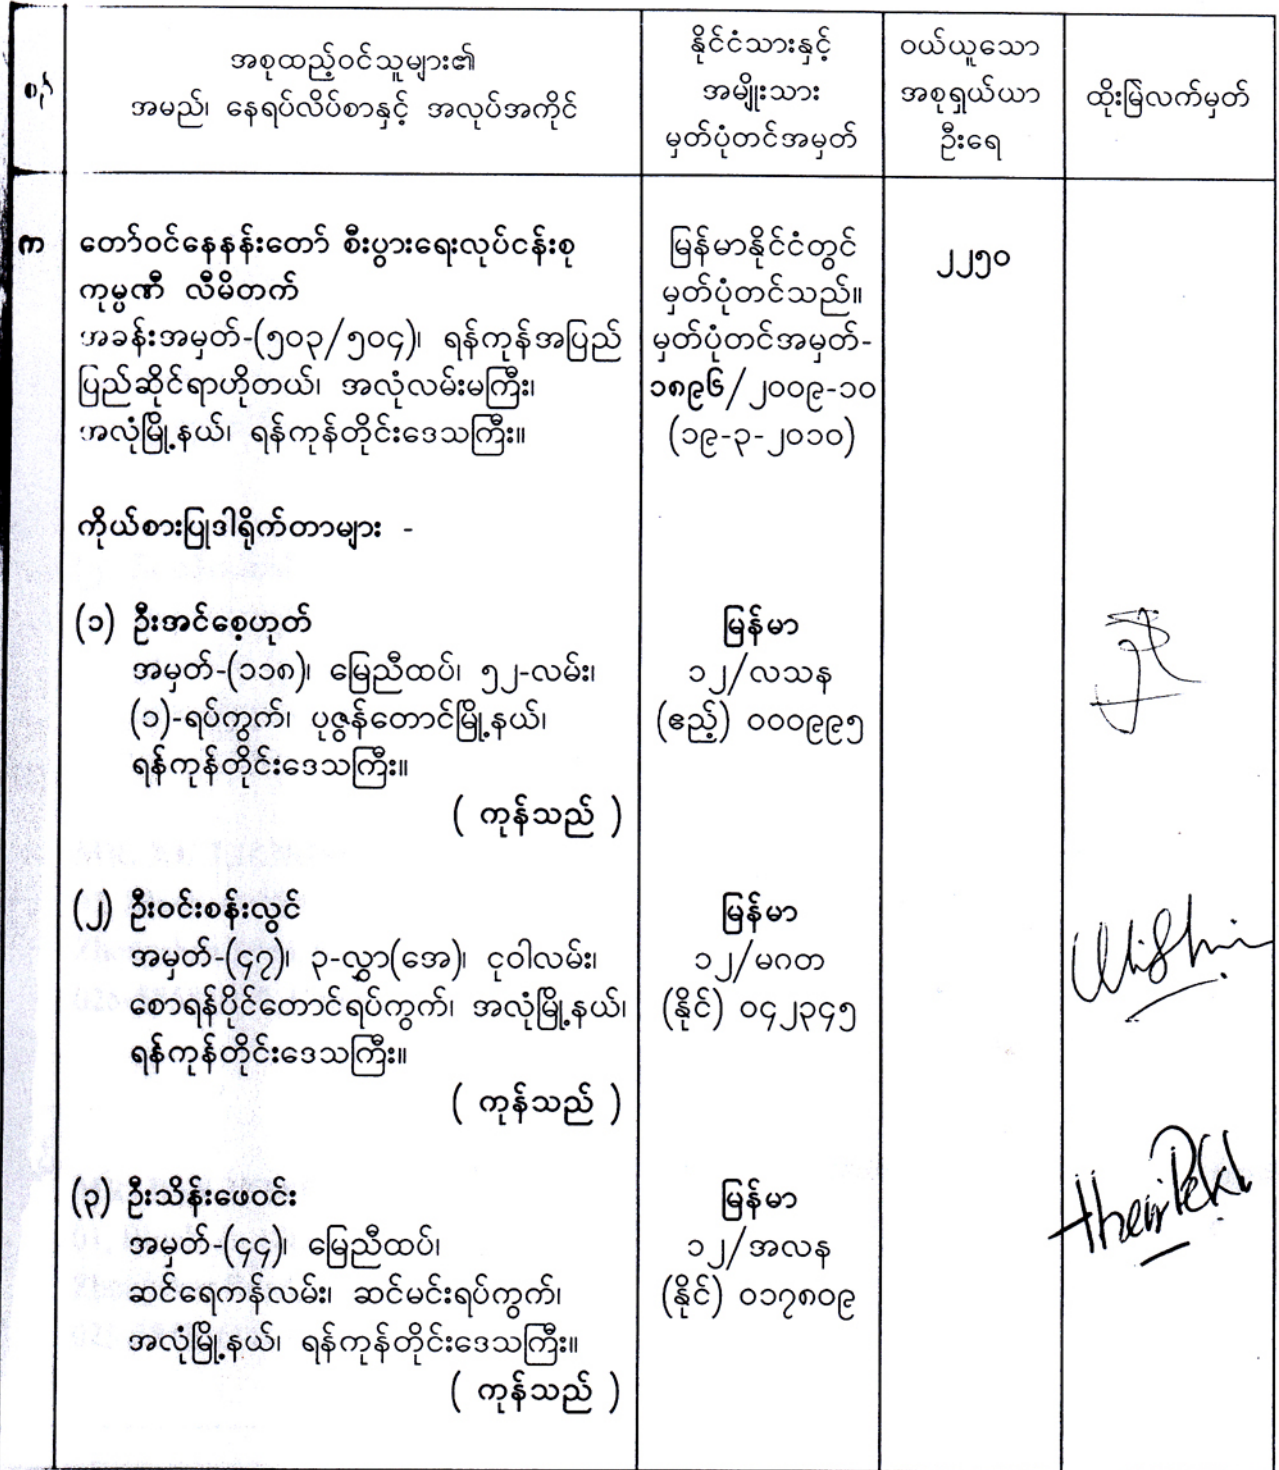 စဉ်
အစုထည့်ဝင်သူများ၏
အမည်၊ နေရပ်လိပ်စာနှင့် အလုပ်အကိုင်
နိုင်ငံသားနှင့်
အမျိုးသား
မှတ်ပုံတင်အမှတ်
ဝယ်ယူသော
အစုရှယ်ယာ
ဦးရေ
ထိုးမြဲလက်မှတ်
က
တော်ဝင်နေနန်းတော် စီးပွားရေးလုပ်ငန်းစု
ကုမ္ပဏီ လီမိတက်
အခန်းအမှတ်-(၅၀၃/၅၀၄)၊ ရန်ကုန်အပြည်
ပြည်ဆိုင်ရာဟိုတယ်၊ အလုံလမ်းမကြီး၊
အလုံမြို့နယ်၊ ရန်ကုန်တိုင်းဒေသကြီး။
မြန်မာနိုင်ငံတွင်
မှတ်ပုံတင်သည်။
မှတ်ပုံတင်အမှတ်-
၁၈၉၆/၂၀၀၉-၁၀
(၁၉-၃-၂၀၁၀)
၂၂၅၀
ကိုယ်စားပြုဒါရိုက်တာများ -
(၁) ဦးအင်စေ့ဟုတ်
အမှတ်-(၁၁၈)၊ မြေညီထပ်၊ ၅၂-လမ်း၊
(၁)-ရပ်ကွက်၊ ပုဇွန်တောင်မြို့နယ်၊
ရန်ကုန်တိုင်းဒေသကြီး။
( ကုန်သည် )
မြန်မာ
၁၂/လသန
(ဧည့်) ၀၀၀၉၉၅
(၂) ဦးဝင်းစန်းလွင်
အမှတ်-(၄၇)၊ ၃-လွှာ(အေ)၊ ငုဝါလမ်း၊
စောရန်ပိုင်တောင်ရပ်ကွက်၊ အလုံမြို့နယ်၊
ရန်ကုန်တိုင်းဒေသကြီး။
( ကုန်သည် )
မြန်မာ
၁၂/မဂတ
(နိုင်) ၀၄၂၃၄၅
(၃) ဦးသိန်းဖေဝင်း
အမှတ်-(၄၄)၊ မြေညီထပ်၊
ဆင်ရေကန်လမ်း၊ ဆင်မင်းရပ်ကွက်၊
အလုံမြို့နယ်၊ ရန်ကုန်တိုင်းဒေသကြီး။
( ကုန်သည် )
မြန်မာ
၁၂/အလန
(နိုင်) ၀၁၇၈၀၉